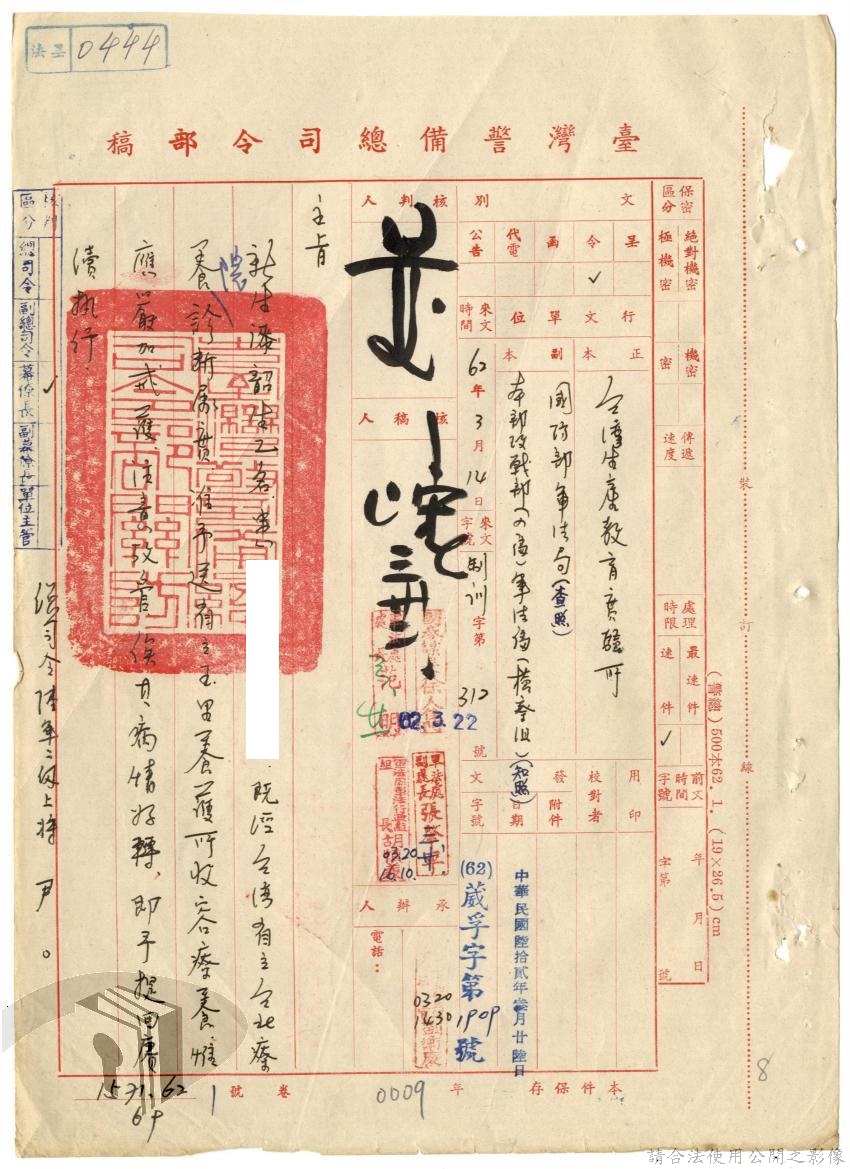 法呈 0444
臺灣警備總司令部稿
保密區分
絕對機密
極機密
機密
密
傳遞速度
處理時限
最速件
速件 ✓
前文時間字號
年 月 日
字第 號
文別
呈
令 ✓
函
代電
公告
行文單位
正本
台灣生產教育實驗所
副本
國防部軍法局(查照)
本部政戰部 軍法處(檢察組)(知照)
來文時間
62年3月14日
來文字號
制訓字第312號
用印
校對者
發文
附件
日期
中華民國陸拾貳年叁月廿陸日
字號
(62)葳孚字第1909號
核判人
核稿人
62.3.22
軍法處副處長張
03.20
16.10.
承辦人
電話：
0320
1430
主旨
新生 韶生乙名患
既經台灣省立台北療
養院診斷屬實准予送省立玉里養護所收容療養惟
應嚴加戒護、注意考管、俟其病情好轉、即予提回賡
續執行.
總司令陸軍二級上將 尹 。
核判區分
總司令
副總司令
幕僚長 ✓
副幕僚長
單位主管
本件保存 年
0009
卷號
1571.62
69
裝 訂 線
(警總)500本62.1.(19×26.5)cm
8
請合法使用公開之影像